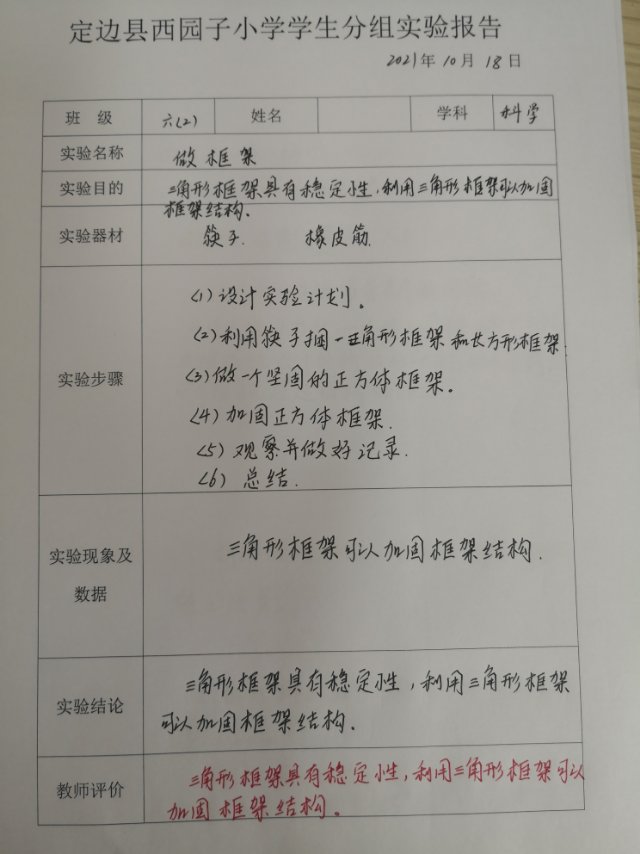 定边县西园子小学学生分组实验报告
2021年10月18日
班 级 六(2) 姓名 学科 科学
实验名称 做框架
实验目的 三角形框架具有稳定性,利用三角形框架可以加固
框架结构.
实验器材 筷子. 橡皮筋.
实验步骤
(1)设计实验计划。
(2)利用筷子捆一三角形框架和长方形框架.
(3)做一个坚固的正方体框架。
(4)加固正方体框架.
(5)观察并做好记录.
(6)总结.
实验现象及
数据
三角形框架可以加固框架结构.
实验结论
三角形框架具有稳定性,利用三角形框架
可以加固框架结构.
教师评价
三角形框架具有稳定性,利用三角形框架可以
加固框架结构。